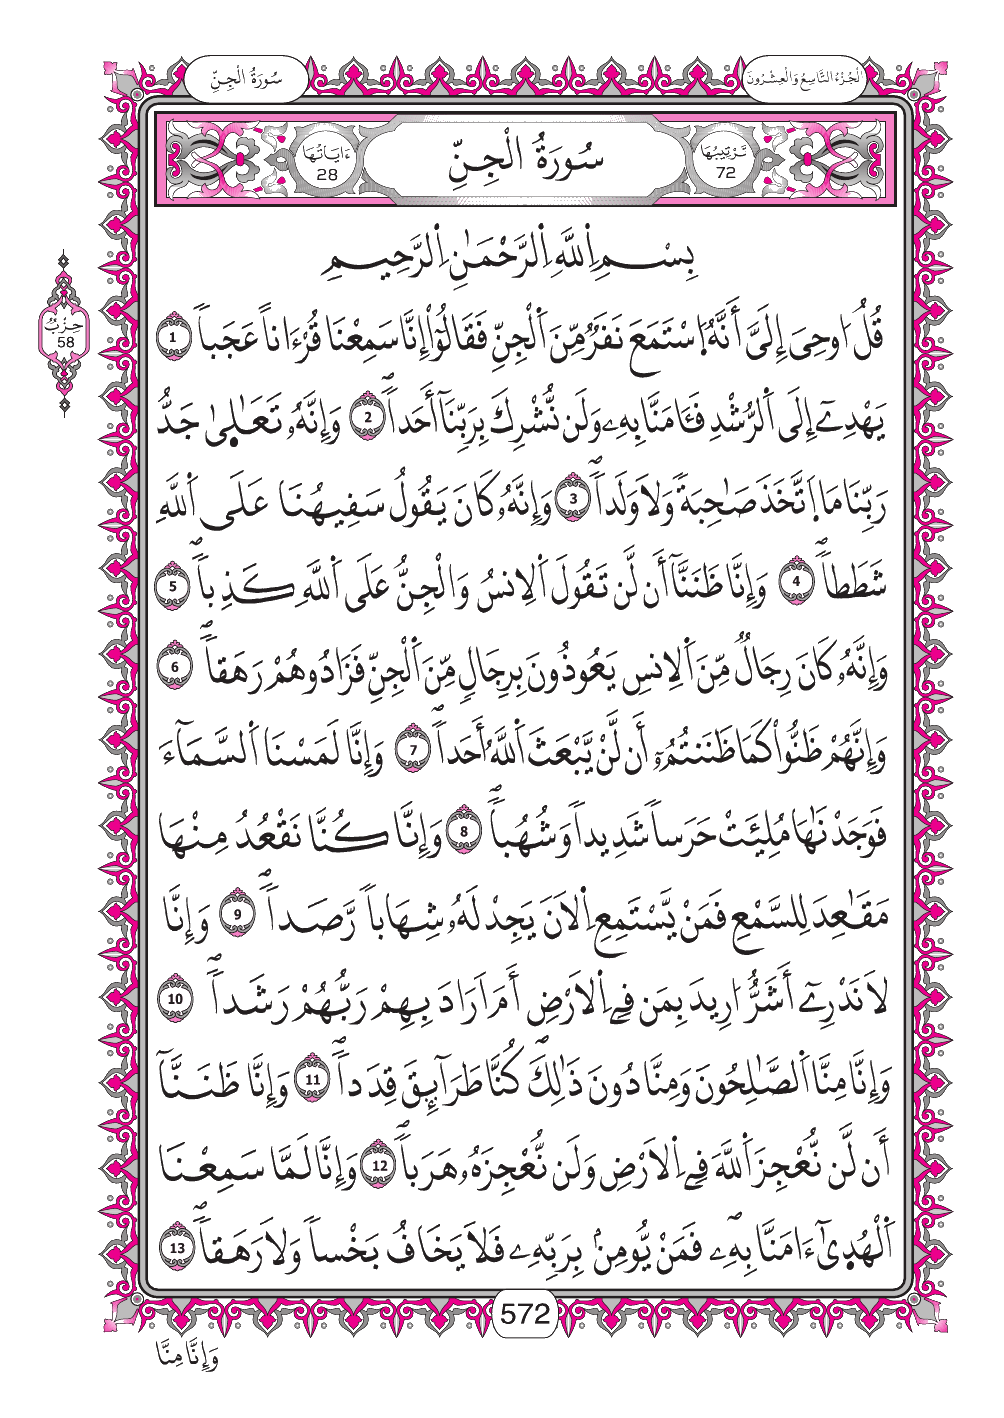 الْجُزْءُ التَّاسِعُ وَالْعِشْرُونَ
سُورَةُ الْجِنِّ
تَرْتِيبُهَا 72
سُورَةُ الْجِنِّ
ءَايَاتُهَا 28
بِسْمِ اِ۬للَّهِ اِ۬لرَّحْمَٰنِ اِ۬لرَّحِيمِ
حِزْبٌ 58
قُلُ ا۟وحِيَ إِلَيَّ أَنَّهُ اُ۪سْتَمَعَ نَفَرٞ مِّنَ اَ۬لْجِنِّ فَقَالُوٓاْ إِنَّا سَمِعْنَا قُرْءَاناً عَجَباٗ 1
يَهْدِےٓ إِلَى اَ۬لرُّشْدِ فَـَٔامَنَّا بِهِۦ وَلَن نُّشْرِكَ بِرَبِّنَآ أَحَداٗۖ 2 وَإِنَّهُۥ تَعَٰل۪يٰ جَدُّ
رَبِّنَا مَا اَ۪تَّخَذَ صَٰحِبَةٗ وَلَا وَلَداٗۖ 3 وَإِنَّهُۥ كَانَ يَقُولُ سَفِيهُنَا عَلَى اَ۬للَّهِ
شَطَطاٗۖ 4 وَإِنَّا ظَنَنَّآ أَن لَّن تَقُولَ اَ۬لِانسُ وَالْجِنُّ عَلَى اَ۬للَّهِ كَذِباٗۖ 5
وَإِنَّهُۥ كَانَ رِجَالٞ مِّنَ اَ۬لِانسِ يَعُوذُونَ بِرِجَالٖ مِّنَ اَ۬لْجِنِّ فَزَادُوهُمْ رَهَقاٗۖ 6
وَإِنَّهُمْ ظَنُّواْ كَمَا ظَنَنتُمُۥٓ أَن لَّنْ يَّبْعَثَ اَ۬للَّهُ أَحَداٗۖ 7 وَإِنَّا لَمَسْنَا اَ۬لسَّمَآءَ
فَوَجَدْنَٰهَا مُلِئَتْ حَرَساٗ شَدِيداٗ وَشُهُباٗۖ 8 وَإِنَّا كُنَّا نَقْعُدُ مِنْهَا
مَقَٰعِدَ لِلسَّمْعِ فَمَنْ يَّسْتَمِعِ اِ۬لَانَ يَجِدْ لَهُۥ شِهَاباٗ رَّصَداٗۖ 9 وَإِنَّا
لَا نَدْرِےٓ أَشَرٌّ ا۟رِيدَ بِمَن فِے اِ۬لَارْضِ أَمَ اَرَادَ بِهِمْ رَبُّهُمْ رَشَداٗۖ 10
وَإِنَّا مِنَّا اَ۬لصَّٰلِحُونَ وَمِنَّا دُونَ ذَٰلِكَۖ كُنَّا طَرَآئِقَ قِدَداٗۖ 11 وَإِنَّا ظَنَنَّآ
أَن لَّن نُّعْجِزَ اَ۬للَّهَ فِے اِ۬لَارْضِ وَلَن نُّعْجِزَهُۥ هَرَباٗۖ 12 وَإِنَّا لَمَّا سَمِعْنَا
اَ۬لْهُد۪ىٰٓ ءَامَنَّا بِهِۦۖ فَمَنْ يُّومِنۢ بِرَبِّهِۦ فَلَا يَخَافُ بَخْساٗ وَلَا رَهَقاٗۖ 13
572
وَإِنَّا مِنَّا